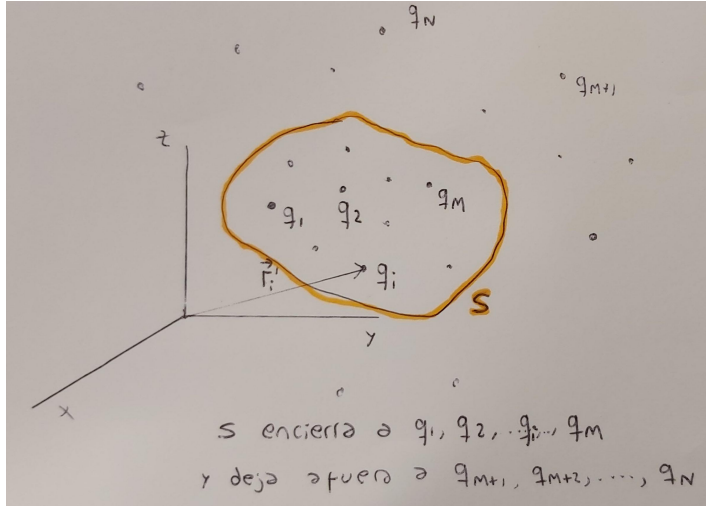 q_N
q_{M+1}
z
q_1
q_2
q_M
\vec{r}_i'
q_i
S
y
x
S encierra a q_1, q_2, ..q_i.., q_M
y deja afuera a q_{M+1}, q_{M+2}, ...., q_N